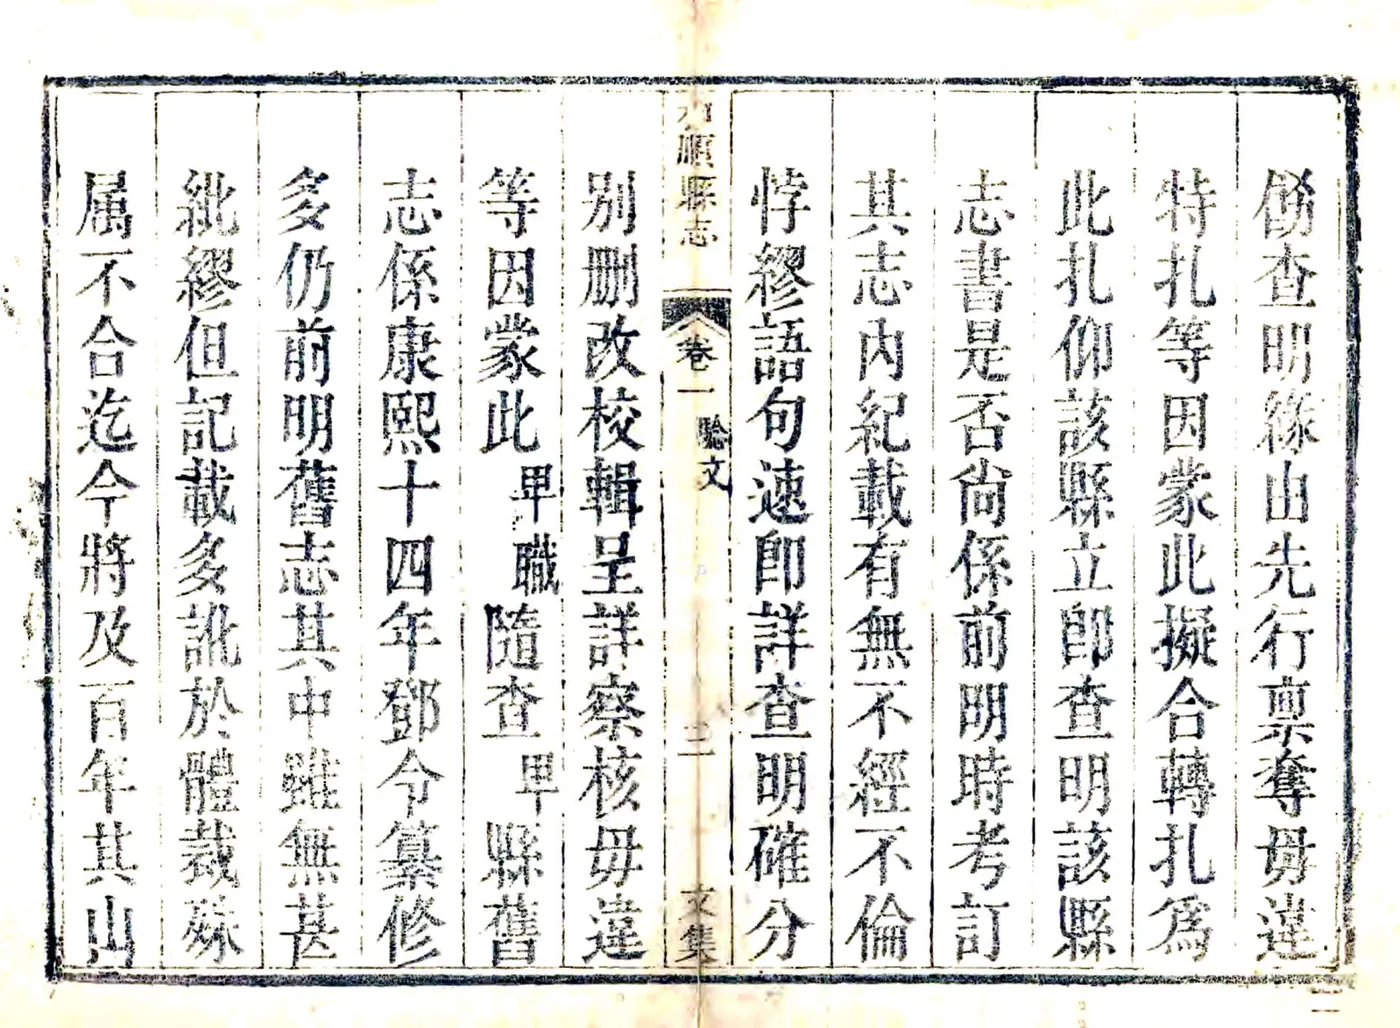 備查明緣由先行禀奪毋違
特扎等因蒙此擬合轉扎爲
此扎仰該縣立卽查明該縣
志書是否尙係前明時考訂
其志內紀載有無不經不倫
悖繆語句速卽詳查明確分
順縣志
卷一
驗文
二
文集
別刪改校輯呈詳察核毋違
等因蒙此卑職隨查卑縣舊
志係康熙十四年鄧令纂修
多仍前明舊志其中雖無甚
紕繆但記載多訛於體裁殊
属不合迄今將及百年其山